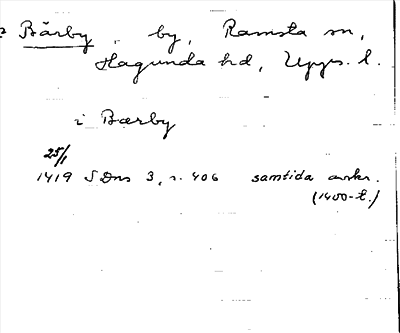 Bärby, by, Ramsta sn,
Hagunda hd, Upps. l.
i Bærby
25/1
1419 SDns 3, s. 406 samtida avskr.
(1400-t.)